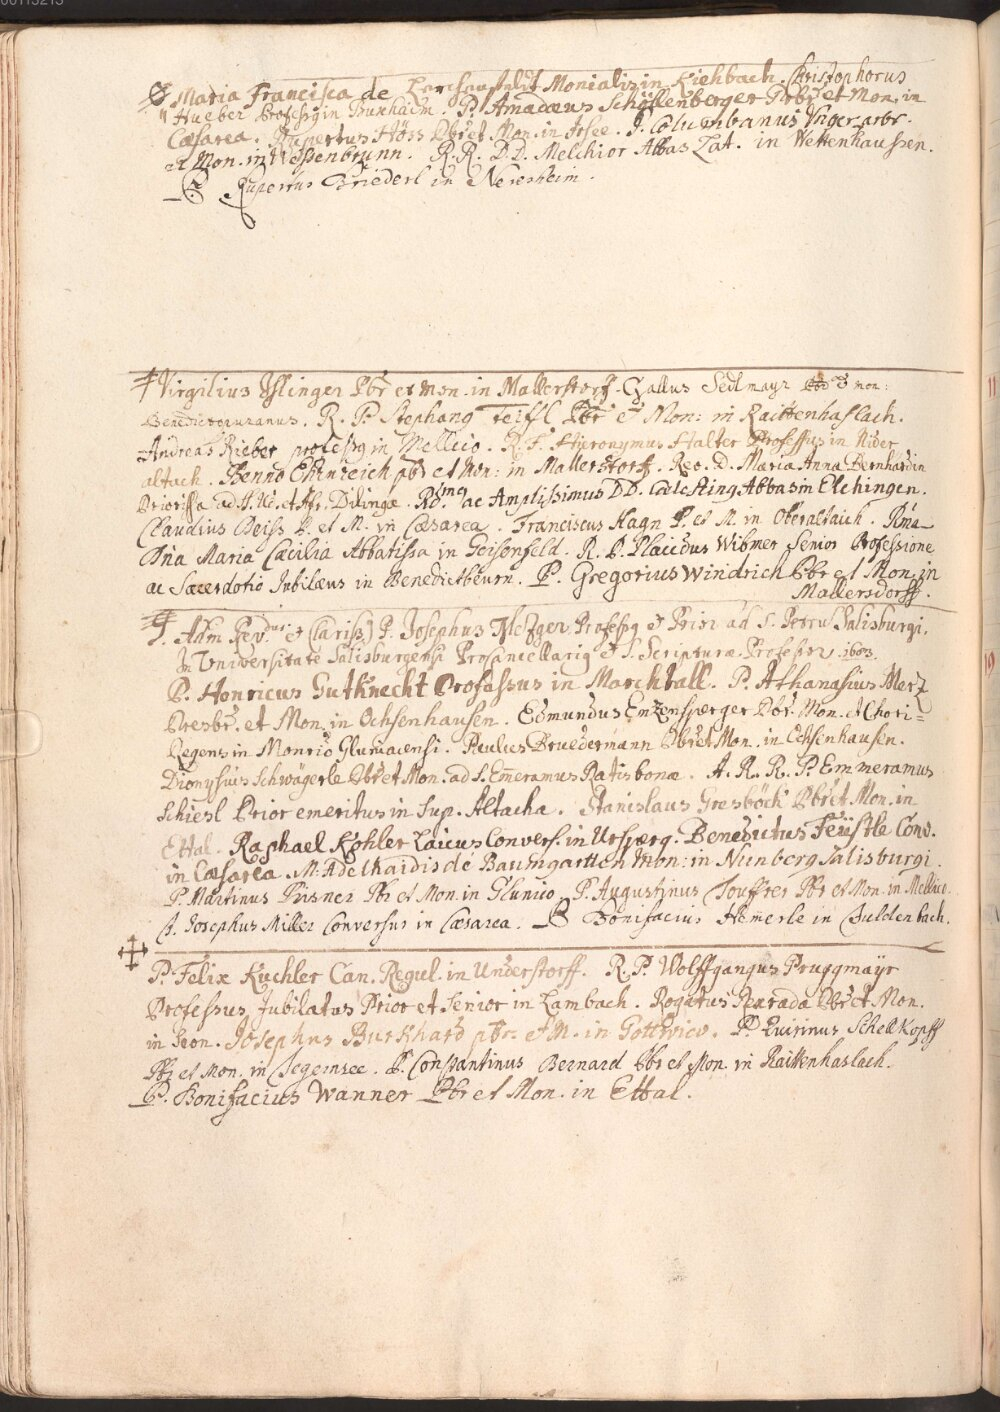 00113213
Maria Francisca de Lerchenfeldt Monialis in Kiehbach. Christophorus
Hueber Professq in Thunhaim. P. Amadæus Schöllenberger Pbr et Mon. in
Cæsarea. Rupertus Höss Pbr et Mon. in Irsee. P. Columbanus
et Mon. in Wessenbrunn. R.R. D.D. Melchior Abbas Lat. in Wettenhaussen.
P. Rupertus Briederl in Neresheim.
Virgilius Yslinger Pbr et Mon. in Mallerstorff. Gallus Sedlmayr Pbr et mon:
Benedictoburanus. R. P. Stephang Teiffl Pbr et Mon: in Raittenhaslach.
Andreas Rieber professq in Mellicio. R. F. Hieronymus Halter Professus in Nider
altach. Benno Ehinreich pbr et Mon: in Mallerstorff. Rev. D. Maria Anna Bernhardin
Priorissa ad Dilingæ. Rdmq ac Amplissimus DD. Cælesting Abbas in Elchingen.
Claudius Theiss P. et M. in Cæsarea. Franciscus Hagn P. et M. in Oberaltaich. Rma
Dna Maria Cæcilia Abbatissa in Geisenfeld. R. P. Placidus Wibmer Senior Professione
ac Sacerdotio Jubilæus in Benedictbeurn. P. Gregorius Windrich Pbr et Mon. in
Mallersdorff.
Adm Rev.dus et Clariss. P. Josephus Mezger Professq et Prior ad S. Petru Salisburgi.
In Universitate Salisburgensi Procancellariq et S. Scripturæ Professor. 1683.
P. Henricus Gutknecht Professus in Marchtall. P. Athanasius Merz
Presbr. et Mon. in Ochsenhausen. Edmundus Enzensperger Pbr. Mon. et Chori=
Regens in Monrio Glunicensi. Paulus Bruedermann Pbr et Mon. in Ochsenhausen.
Dionysius Schwägerle Pbr et Mon. ad S. Emeramus Ratisbonæ. A. R. R. P. Emmeramus
Schiesl Prior emeritus in Sup. Altacha. Stanislaus Gresböck Pbr et Mon. in
Ettal. Raphael Kohler Laicus Convers. in Ursperg. Benedictus Feüstle Conv.
in Cæsarea. M. Adelhaidis de Baumgartten Mon: in Nunberg Salisburgi.
P. Martinus Pirsner Pbr et Mon. in Glunico. P. Augustinus Pbr et Mon. in Mellico.
F. Josephus Miller Conversus in Cæsarea. P. Bonifacius Hemerle in Fuldenbach.
P. Felix Kuchler Can. Regul. in Understorff. R. P. Wolffgangus Pruggmayr
Professus, Jubilatus Prior et Senior in Lambach. Rogatus Pbr et Mon.
in Seon. Josephus Burkhard pbr. et M. in Gottwico. P. Quirinus Schellkopff
Pbr et Mon. in Tegernsee. P. Constantinus Bernard Pbr et Mon. in Raittenhaslach.
P. Bonifacius Wanner Pbr et Mon. in Ettal.